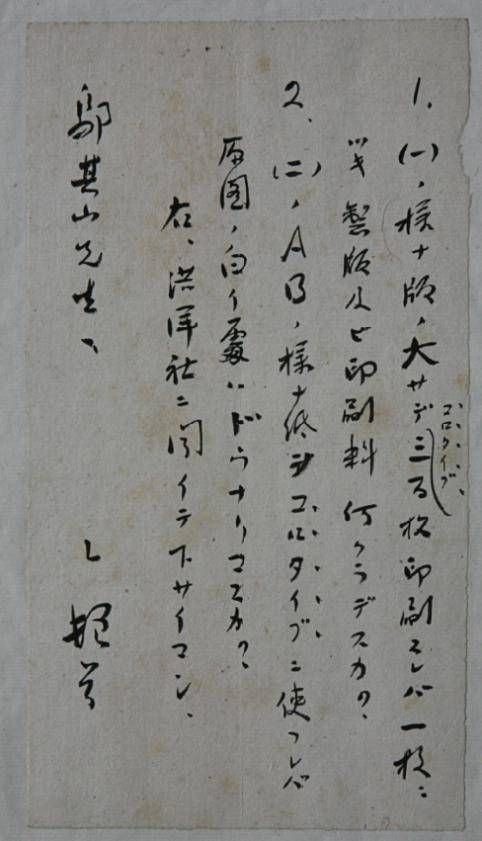 1、(一)ノ様ナ版ノ大サデ三百枚印刷スレバ一枚ニ
コロタイプ、
ツキ製版及ビ印刷料何クラデスカ?、
2、(二)ノABノ様ナ紙ヲコロタイプニ使フレバ
原図ノ白イ處ハドウナリマスカ?
右、洪洋社ニ聞イテ下サイマシ、
鄔其山先生、
L